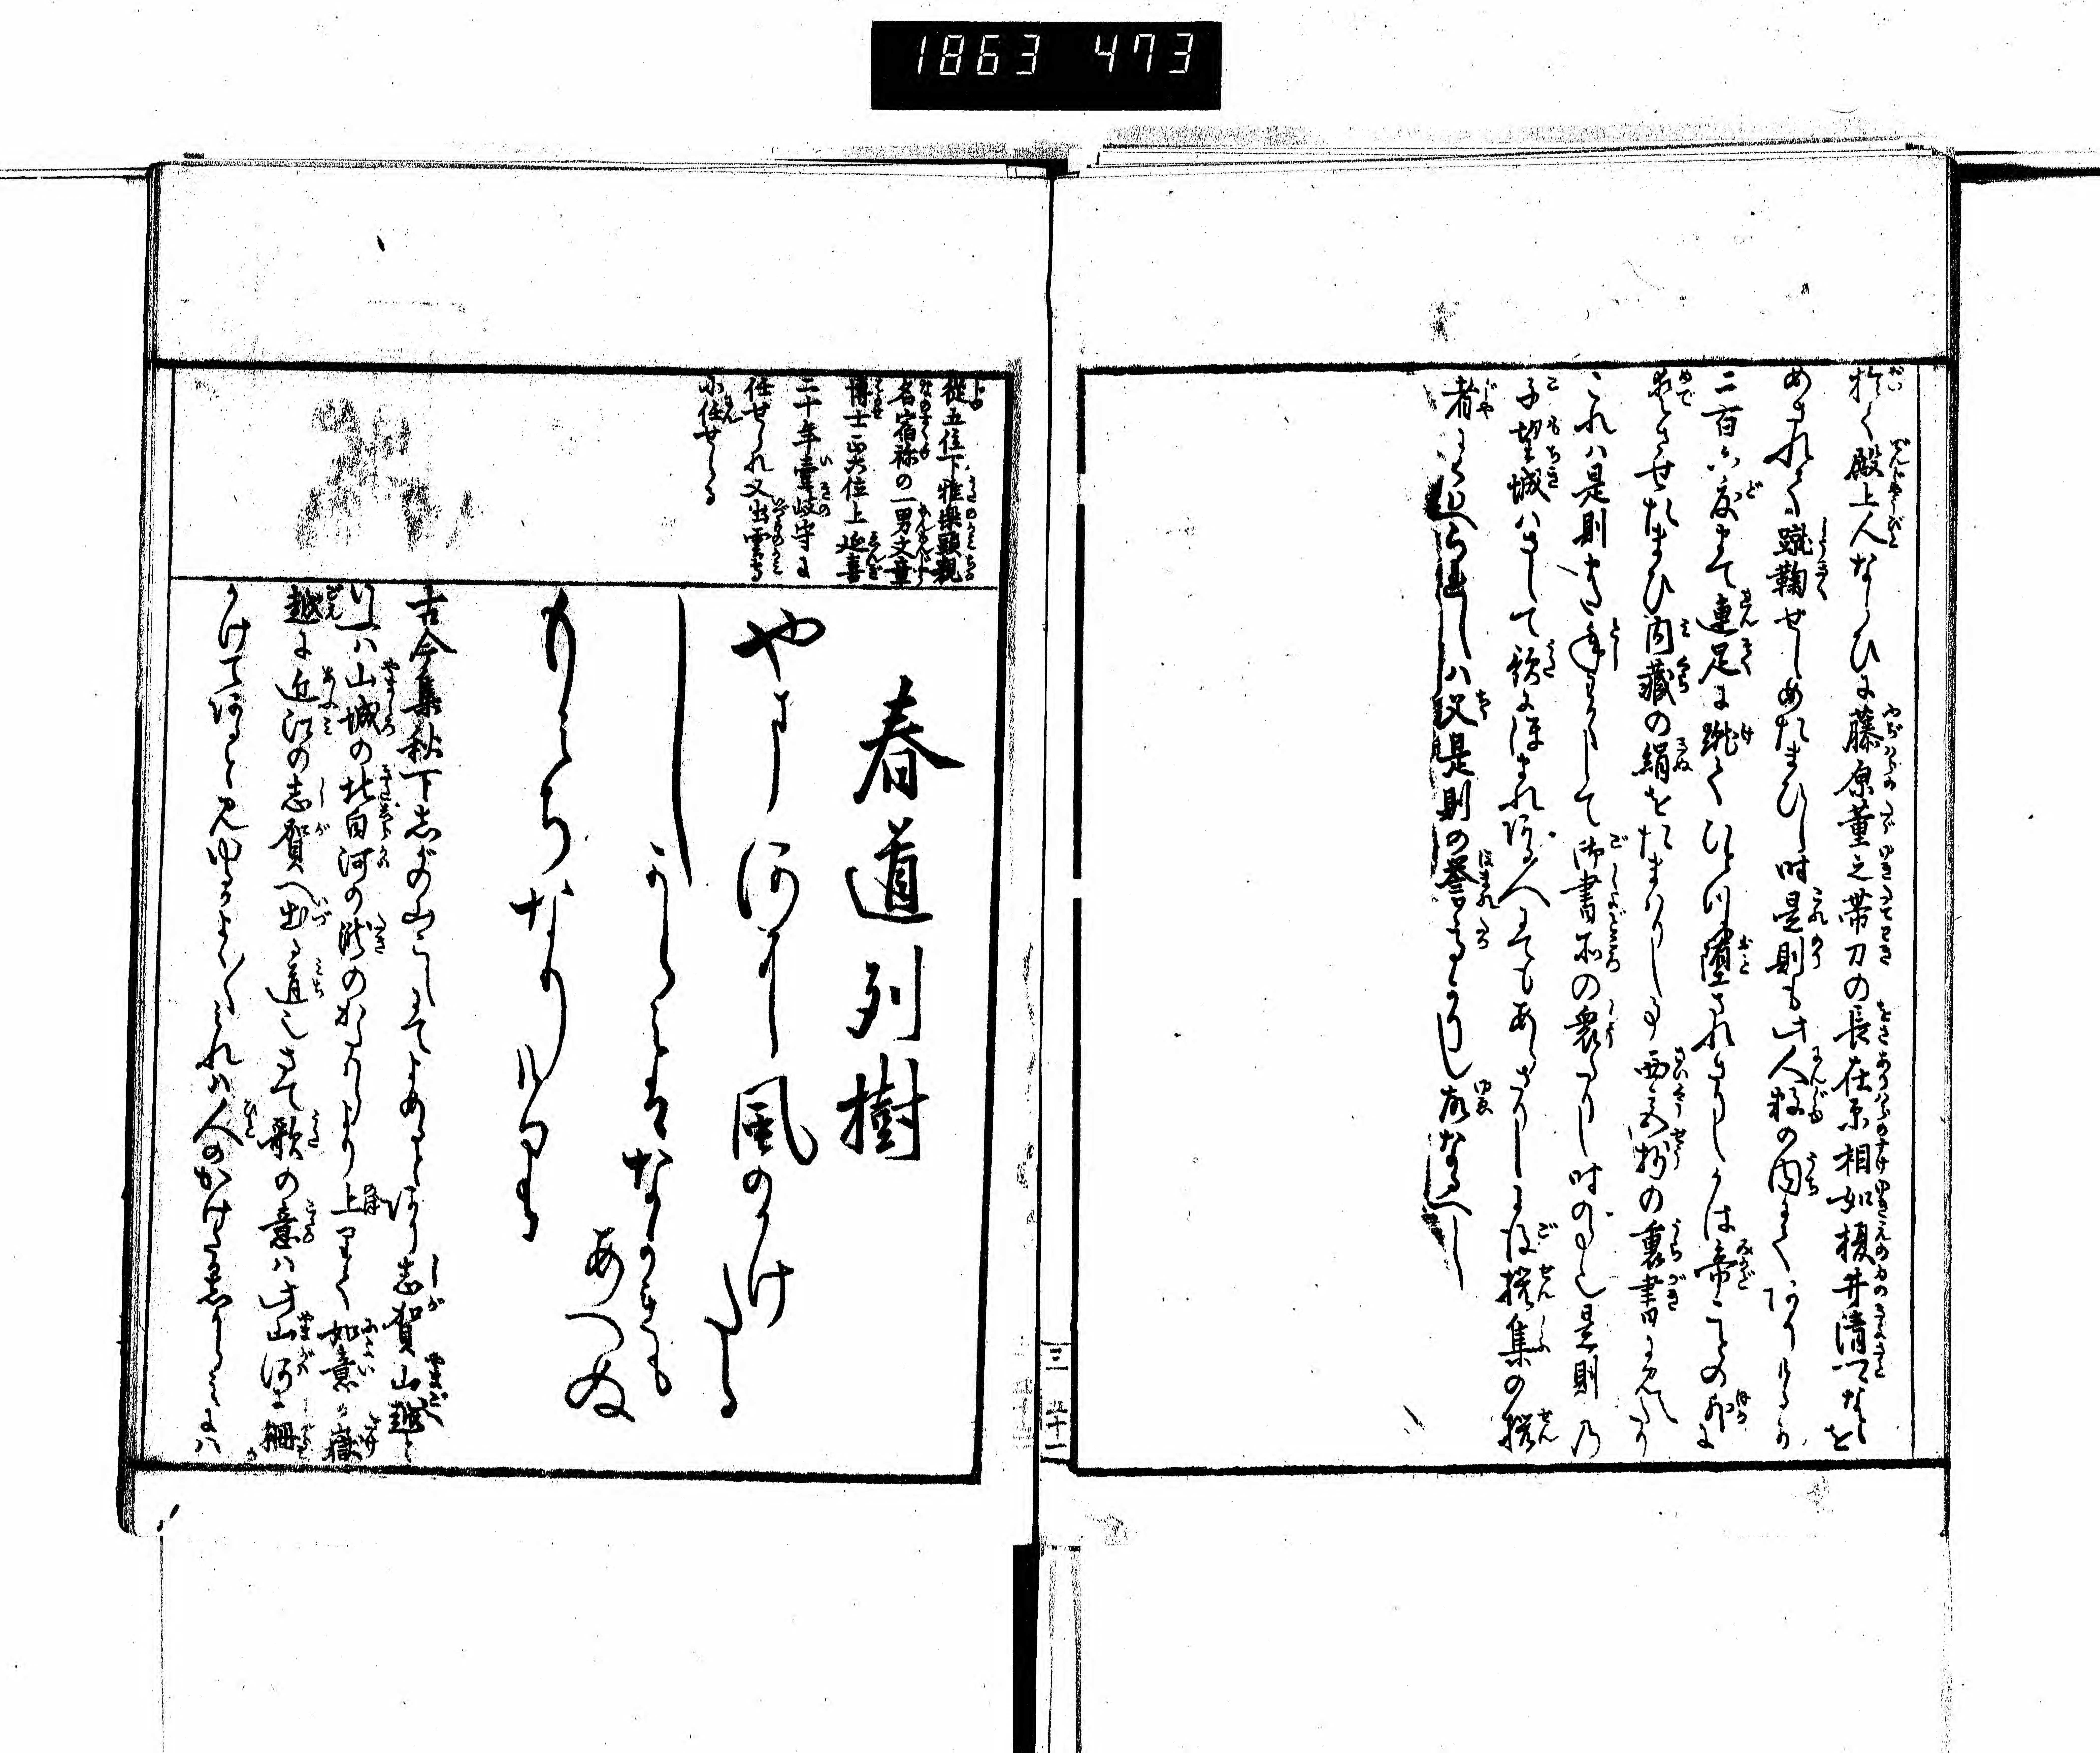 1863 473
於て殿上人ならひに藤原董之帯刀の長在原相如榎井清〻なとを
めされて蹴鞠せしめたまひし時是則も此人数の内にてありけるか
二百六度まて連足に蹴てひとつも墮されさりしかは帝ことの外に
めてさせたまひ内藏の絹をたまはりし事西宮抄の裏書に見へたり
これハ是則
御書所の衆たりし時の事也是則乃
子望城ハさして歌にほまれある人にてもあらさりしに後撰集の撰
者にくはへられしハ父是則の誉によりし故なるへし
三 五十一
春道列樹
やま河に風のかけたる
しからみはなかれも
あへぬ
もみちなりけり
從五位下雅樂頭親
名宿祢の一男文章
博士正六位上延喜
二十年壹岐守に
任せられ又出雲守
に任せらる
古今集秋下志賀の山こえにてよめるとあり志賀山越と
いふハ山城の北白河の瀧のかたはらより上りて如意か嶽
越に近江の志賀へ出る道也さて歌の意ハ此山河に柵
かけてあると見ゆるよくよくみれハ人のかけたる志からみにハ